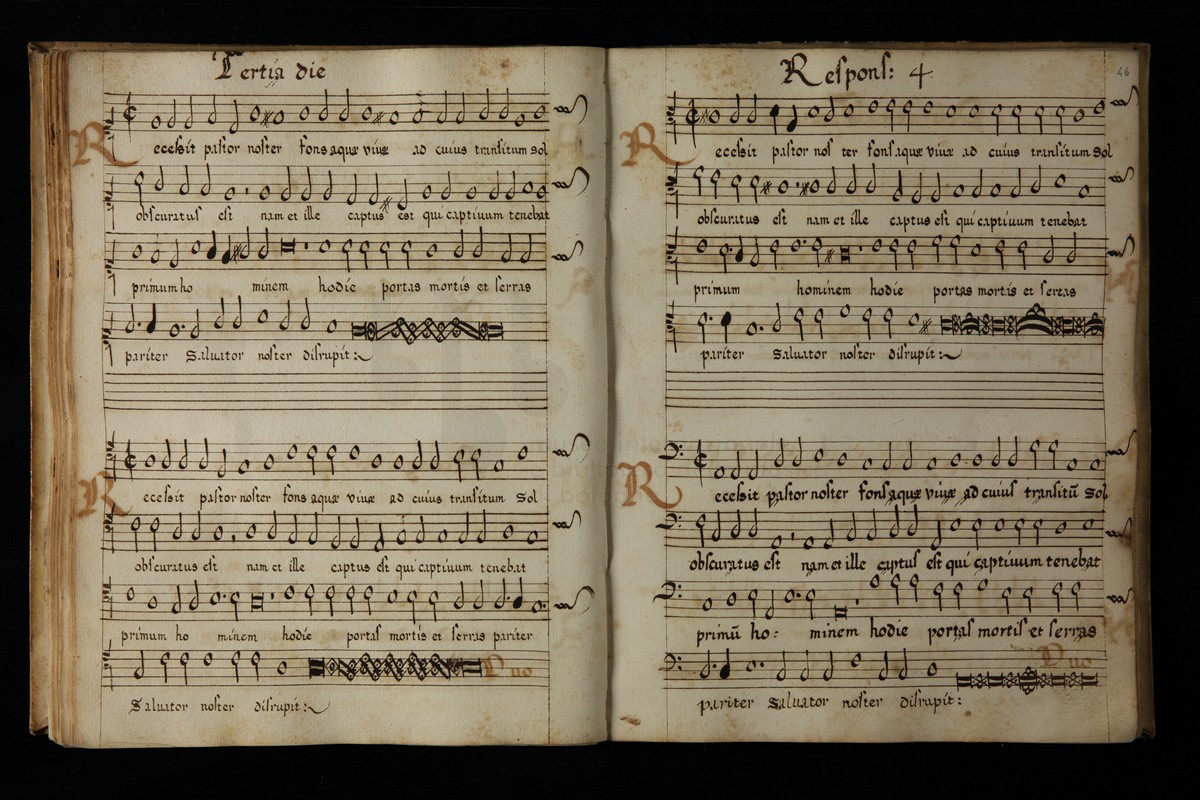 Tertia die
Recessit pastor noster fons aquæ viuæ ad cuius transitum sol
obscuratus est nam et ille captus est qui captiuum tenebat
primum ho minem hodie portas mortis et serras
pariter Saluator noster disrupit:
Recessit pastor noster fons aquæ viuæ ad cuius transitum Sol
obscuratus est nam et ille captus est qui captiuum tenebat
primum ho minem hodie portas mortis et serras pariter
Duo
Saluator noster disrupit:
Respons: 4
46
Recessit pastor nos ter fons aquæ viuæ ad cuius transitum Sol
obscuratus est nam et ille captus est qui captiuum tenebat
primum hominem hodie portas mortis et serras
pariter Saluator noster disrupit:
Recessit pastor noster fons aquæ viuæ ad cuius transitū Sol
obscuratus est nam et ille captus est qui captiuum tenebat
primū ho: minem hodie portas mortis et serras
Duo
pariter Saluator noster disrupit: